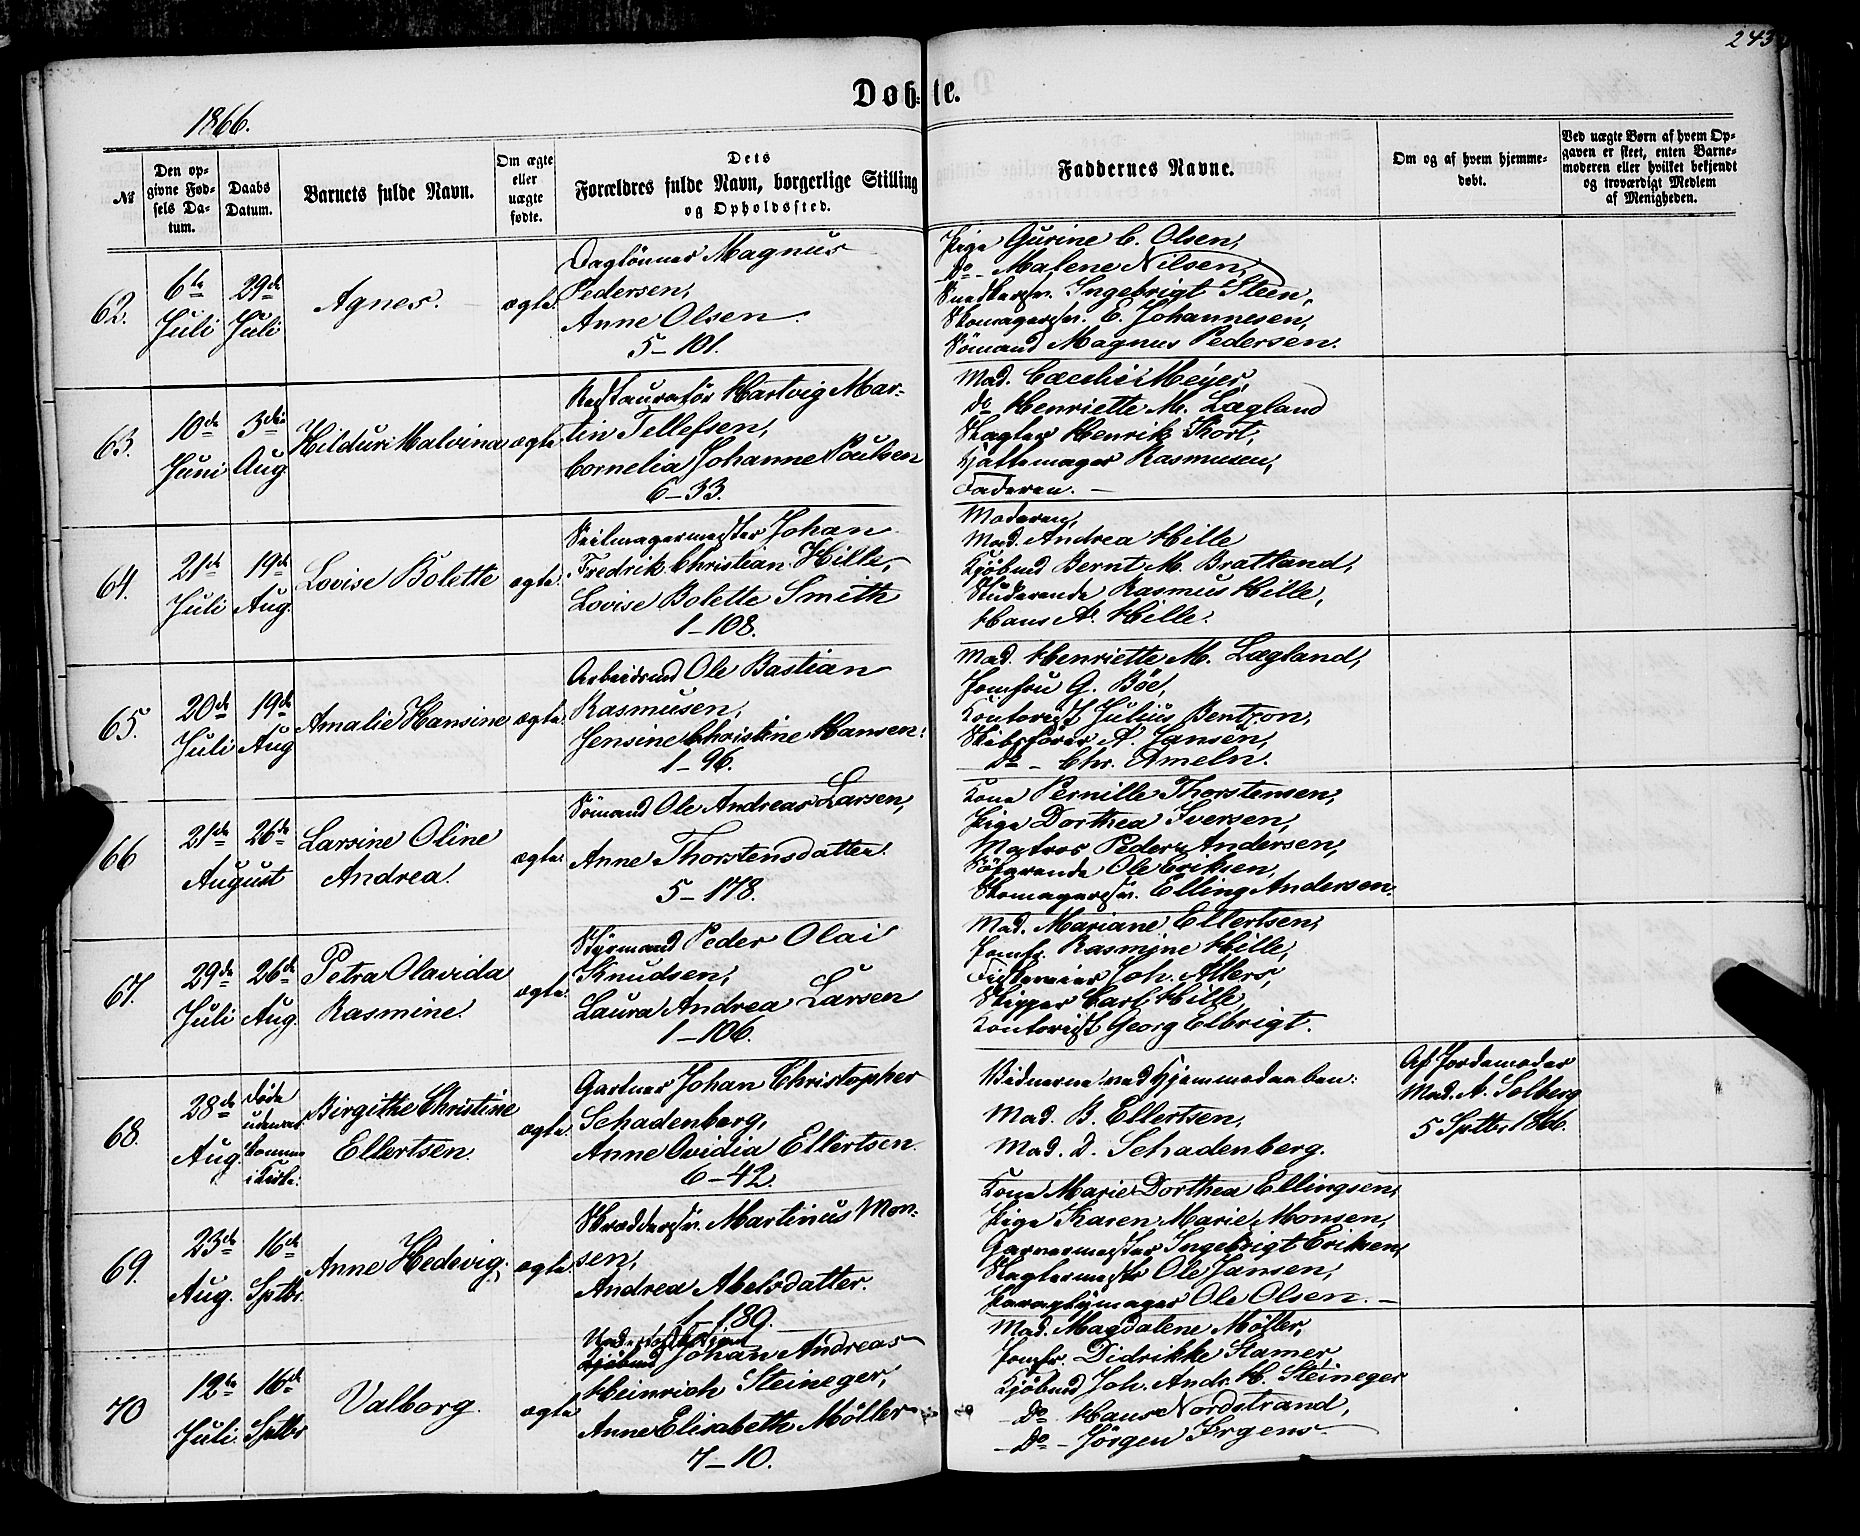 243
Døbte.
1866.
№
Den opgivne Fødsels Datum.
Daabs Datum.
Barnets fulde Navn.
Om ægte eller uægte fødte.
Dets Forældres fulde Navn, borgerlige Stilling og Opholdssted.
Faddernes Navne.
Om og af hvem hjemmedøbt.
Ved uægte Børn af hvem Opgaven er skeet, enten Barnemoderen eller hvilket bekjendt og troværdigt Medlem af Menigheden.
62.
6te Juli
29de Juli
Agnes.
ægte.
Daglønner Magnus
Pedersen,
Anne Olsen.
5-101.
Pige Gurine C. Olsen,
Do - Malene Nilsen,
Snedkersv. Ingebrigt Steen,
Skomagersv. E. Johannesen,
Sømand Magnus Pedersen.
63.
10de Juni
3die Aug
Hilduri Malvina
ægte
Restauratør Hartvig Mar-
tin Tellefsen,
Cornelia Johanne Poulsen
6-33.
Mad. Cæcilie Meyer,
Do Henriette M. Lægland
Slagter Henrik Kort,
Hattemager Rasmusen,
Faderen. -
64.
21de Juli
19de Aug.
Lovise Bolette
ægte.
Seilmagermester Johan
Fredrik Christian Hille,
Lovise Bolette Smith
1-108.
Moderen,
Mad. Andrea Hille
Kjøbmd Bernt M. Bratland,
Studerende Rasmus Hille,
Hans A. Hille.
65.
20de Juli
19de Aug
Amalie Hansine
ægte.
Arbeidsmd Ole Bastian
Rasmusen,
Jensine Christine Hansen.
1-96.
Mad. Henriette M. Lægland,
Jomfru G. Bøe,
Kontorist Julius Bentzon,
Skibsfører A. Jansen,
Do - Chr. Ameln.
66
21de 26de
August
Larsine Oline
Andrea.
ægte.
Sømand Ole Andreas Larsen,
Anne Thorstensdatter
5-178.
Kone Pernille Thorstensen,
Pige Dorthea Iversen,
Matros Peder Andersen,
Søfarende Ole Eriksen,
Skomagersv. Elling Andersen.
67.
29de Juli
26de Aug.
Petra Olavida
Rasmine.
ægte.
Styrmand Peder Olai
Knudsen,
Laura Andrea Larsen
1-106.
Mad. Mariane Ellertsen,
Jomfr. Rasmine Hille,
Joh. Allers,
Skipper Carl Hille,
Kontorist Georg Elbrigt.
68.
28de Aug.
Døde
uden at
komme
i Kirke.
Birgithe Christine
Ellertsen.
ægte.
Gartner Johan Christopher
Schadenberg,
Anne Ovidia Ellertsen.
6-42.
Vidnerne ved Hjemmedaaben:
Mad. B. Ellertsen,
Mad. D. Schadenberg.
Af Jordemoder
Mad. A. Selberg
5 Sptbr 1866.
69.
23de Aug.
16de Sptbr.
Anne Hedevig.
ægte.
Skræddersv. Martinus Mon-
sen,
Andrea Abelsdatter.
1-189.
Kone Marie Dorthea Ellingsen,
Pige Karen Marie Monsen,
Garvermester Ingebrigt Eriksen,
Slagtermestr Ole Jansen,
Paraplymager Ole Olsen. -
70
12te Juli
16de Sptbr
Valborg.
ægte
Kjøbmd Johan Andreas
Heinrich Steineger,
Anne Elisabeth Møller
7-10.
Mad. Magdalene Møller,
Jomfr. Didrikke Stamer,
Kjøbmd Joh. Andr. H. Steineger
- Do - Hans Nordstrand,
- Do - Jörgen Irgens